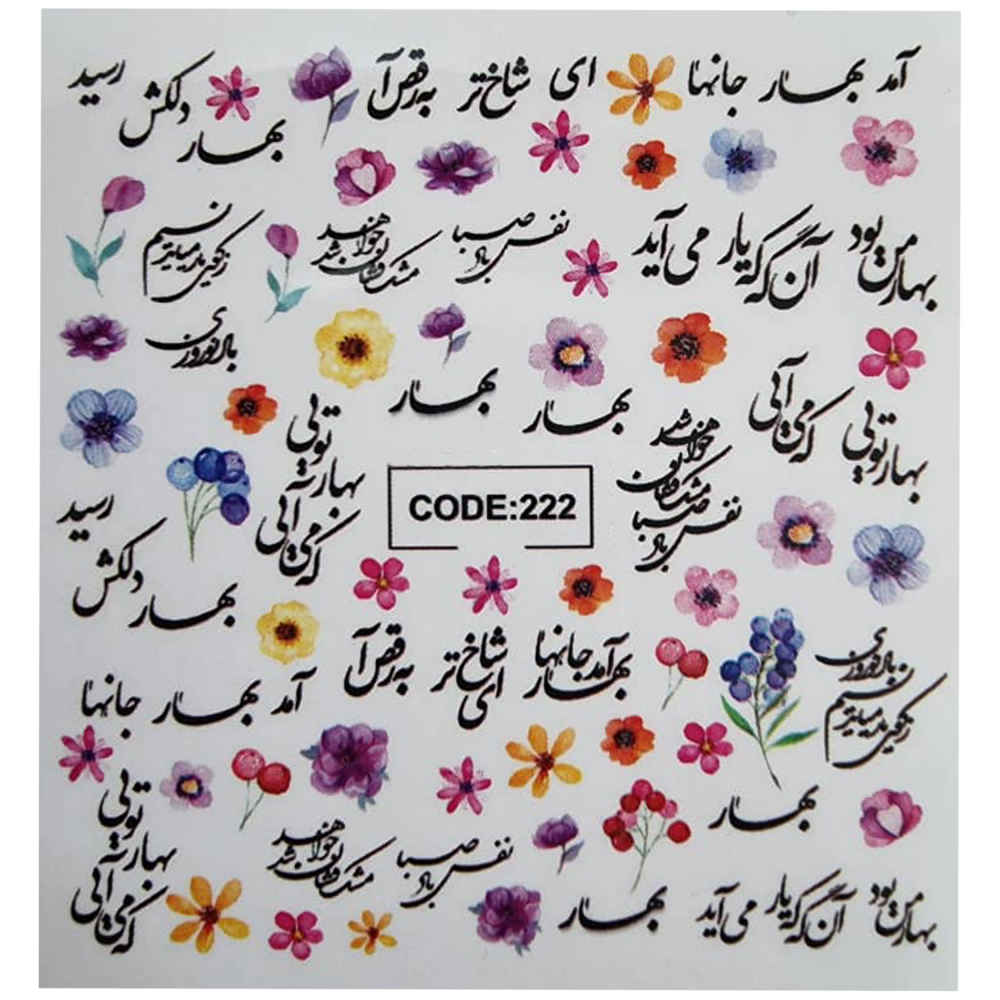 آمد بهار جانها
ای شاخ تر به رقص آ
بهار دلکش رسید
بهار من بود آن گه که یار می آید
نفس باد صبا مشک فشان خواهد شد
باد نوروزی
بهار
بهار
بهار تویی که می آیی
بهار تویی که می آیی
نفس باد صبا مشک فشان خواهد شد
CODE:222
بهار دلکش رسید
بهار آمد جانها ای شاخ تر به رقص آ
آمد بهار جانها
باد نوروزی
بهار
بهار تویی که می آیی
نفس باد صبا مشک فشان خواهد شد
بهار
بهار من بود آن گه که یار می آید